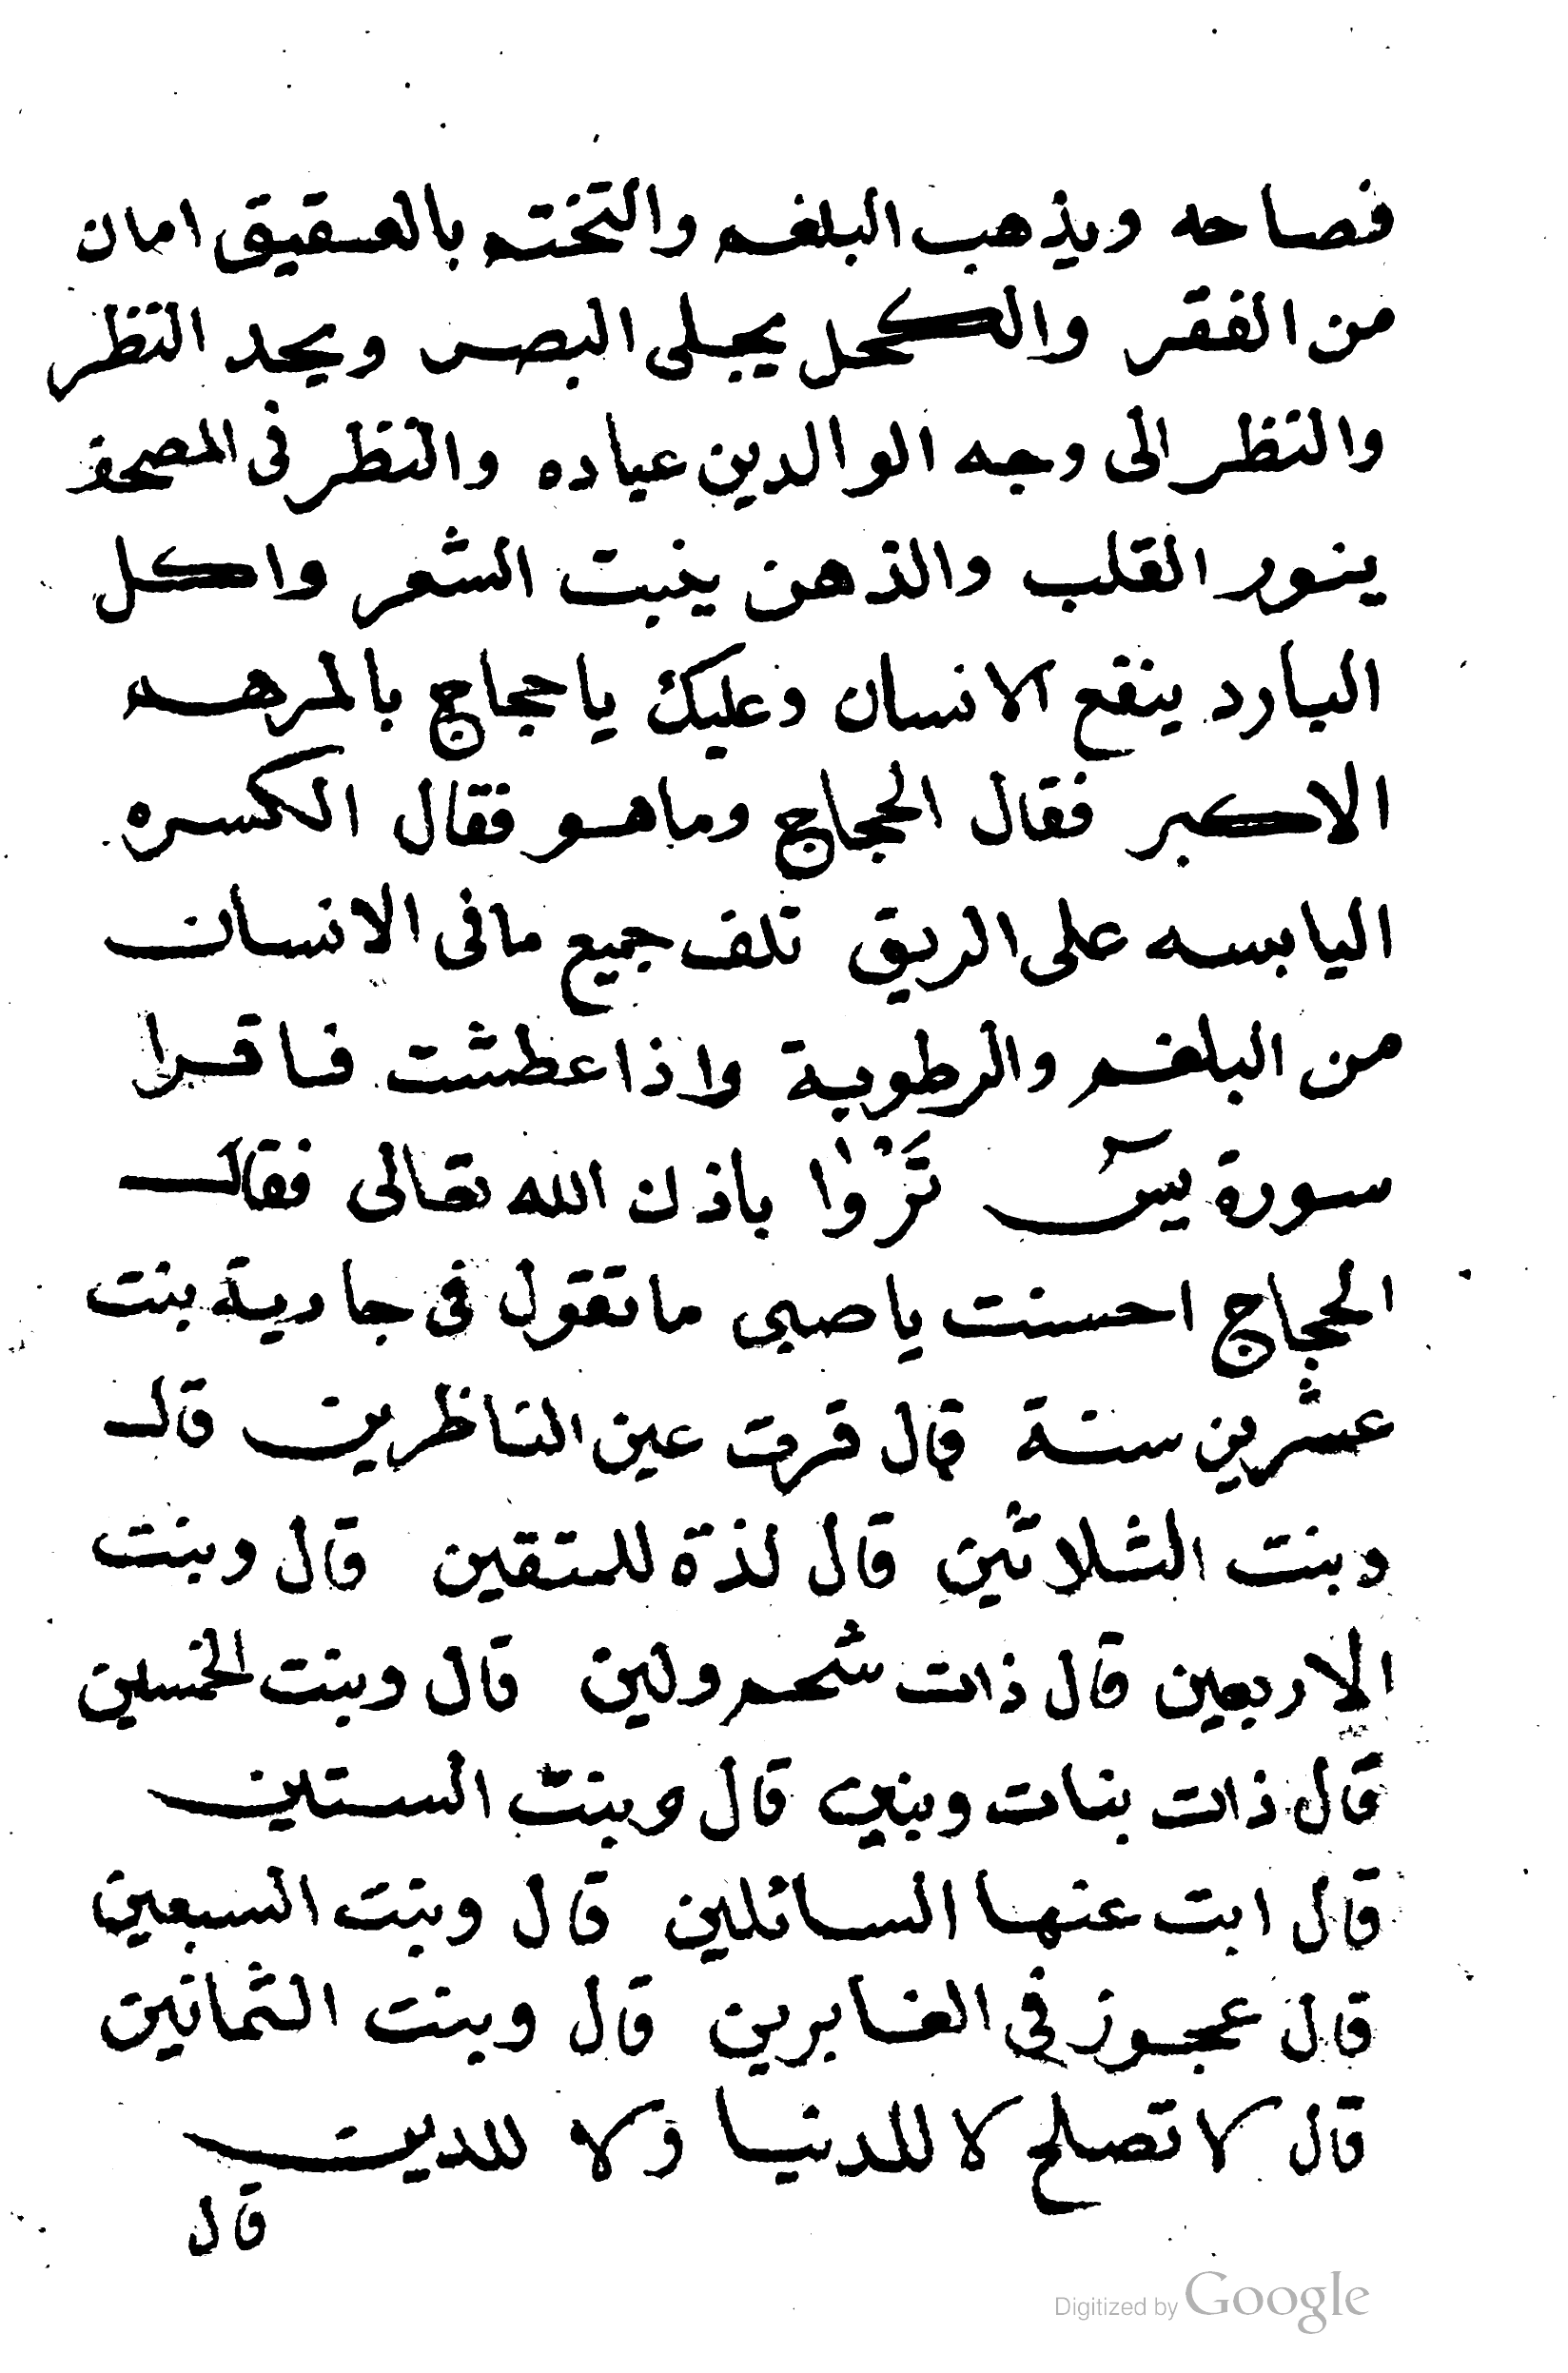 فصاحه ويذهب البلغم والتختم بالعقيق امان
من الفقر والكحل يجلى البصر ويحد النظر
والنظر الى وجه الوالدين عباده والنظر فى المصحف
ينور القلب والدهن ينبت الشعر واكل
البارد ينفع الانسان وعليك ياحجاج بالمرهم
الاكبر فقال الحجاج وماهو فقال الكسره
اليابسه على الريق تلف جميع مافى الانسان
من البلغم والرطوبة واذا عطشت فاقرا
سورة يس تَرْوٰا باذن الله تعالى فقال
الحجاج احسنت ياصبى ماتقول فى جارية بنت
عشرين سنة قال قرت عين الناظرين قال
وبنت الثلاثين قال لذة للمتقين قال وبنت
الاربعين قال ذات شحم ولين قال وبنت الخمسين
قال ذات بنات وبنين قال وبنت الستين
قال ابت عنها السائلين قال وبنت السبعين
قال عجوز فى الغابرين قال وبنت الثمانين
قال لاتصلح لا للدنيا ولا للدين
قال
Digitized by Google